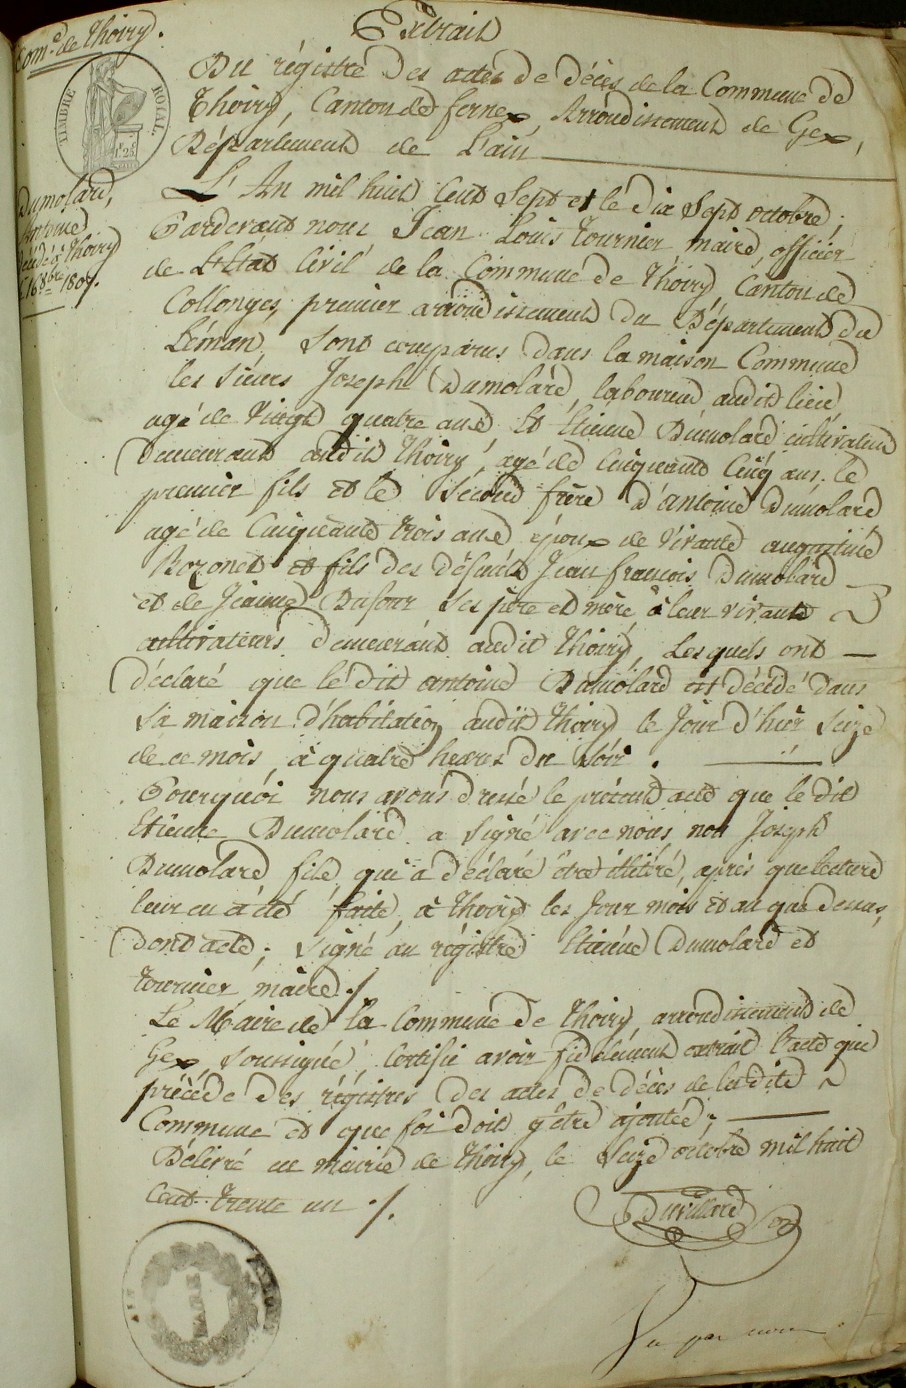 Extrait
Com.e de Thoiry.
TIMBRE ROYAL.
Du régistre des actes de décès de la Commune de
Thoiry, Canton de fernex, Arrondissement de Gex,
Département de L'ain
Dumolard,
Antoine
décédé à Thoiry
le 16 8bre 1807.
L'An mil huit Cent Sept et le dix Sept octobre;
Pardevant nous Jean Louis tournier, maire, officier
de L'Etat Civil de la Commune de Thoiry Canton de
Collonges premier arrondissement du Département du
Léman, sont comparus dans la maison Commune
les sieurs Joseph Dumolard, laboureur audit lieu,
agé de Vingt quatre ans Et Etienne Dumolard cultivateur
demeurant audit Thoiry, agé de Cinquante Cinq ans, le
premier fils et le Second frère d'antoine Dumolard
agé de Cinquante trois ans époux de vivante augustine
Rozonet et fils des défunts Jean françois Dumolard
et de Jeanne Dufour ses père et mère, à leur vivant
cultivateurs demeurant audit Thoiry, Lesquels ont
déclaré que le dit antoine Dumolard est décédé dans
sa maison d'habitation audit Thoiry le Jour d'hier Seize
de ce mois, à quatre heures du Soir.
Pourquoi nous avons dressé le présent acte que le dit
Etienne Dumolard a signé avec nous non Joseph
Dumolard fils, qui a déclaré être illitéré, après que lecture
leur en a été faite, à Thoiry les Jour mois et an que dessus,
dont acte; Signé au régistre Etienne Dumolard et
tournier, maire ./
Le Maire de la Commune de Thoiry, arrondissement de
Gex, Soussigné, Certifie avoir fidèlement extrait l'acte que
précède des régistres des actes de décès de ladite
Commune et que foi doit y être ajoutée;
Délivré en mairie de Thoiry, le Seize octobre mil huit
Cent Trente un ./.
Duvillard
Vu par nous